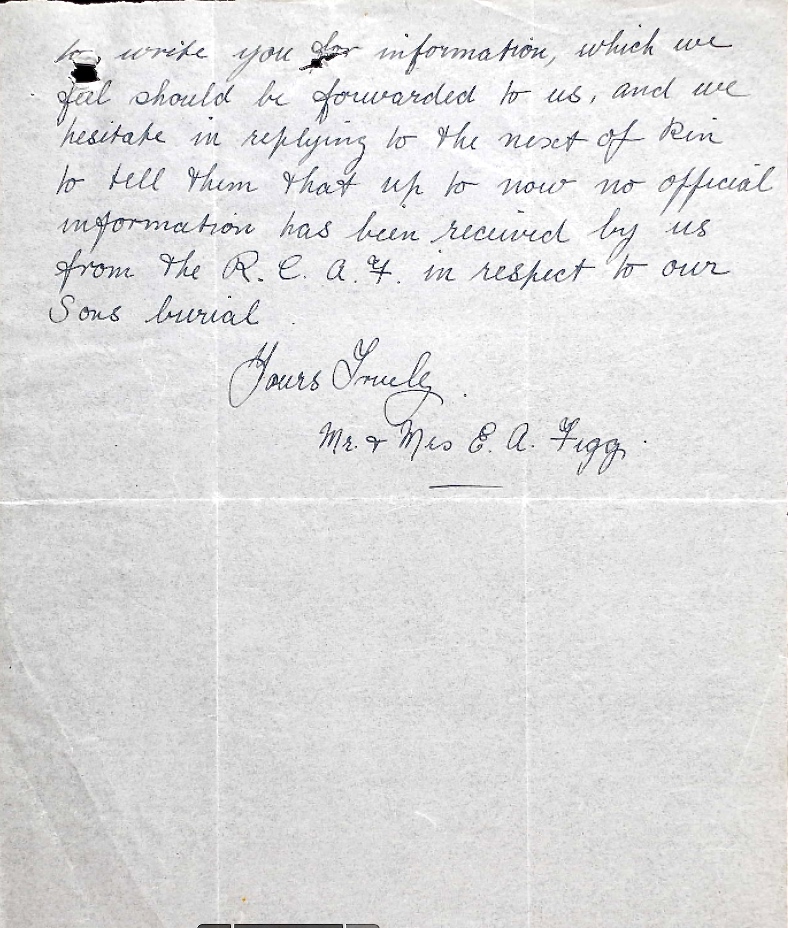 to write you for information, which we
feel should be forwarded to us, and we
hesitate in replying to the next of kin
to tell them that up to now no official
information has been received by us
from the R. C. A. F. in respect to our
Sons burial.
Yours Truely.
Mr. & Mrs E. A. Figg.